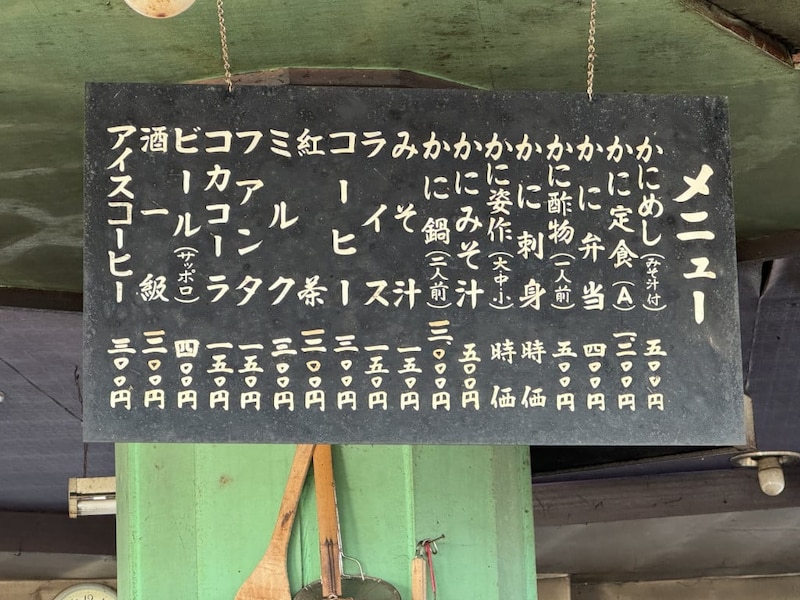 メニュー
かにめし（みそ汁付） 五〇〇円
かに定食（A） 一、三〇〇円
かに弁当 四〇〇円
かに酢物（一人前） 五〇〇円
かに刺身 時価
かに姿作（大中小） 時価
かにみそ汁 五〇〇円
かに鍋（二人前） 三、〇〇〇円
みそ汁 一五〇円
ライス 一五〇円
コーヒー 三〇〇円
紅茶 三〇〇円
ミルク 三〇〇円
ファンタ 一五〇円
コカコーラ 一五〇円
ビール（サッポロ） 四〇〇円
酒一級 三〇〇円
アイスコーヒー 三〇〇円